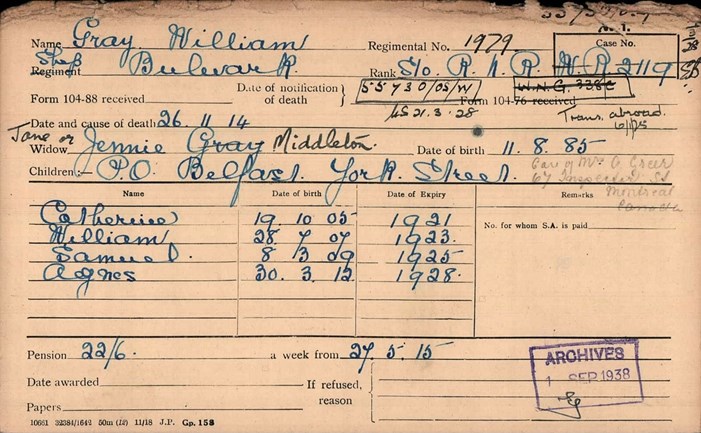 N.I.
Name Gray William Regimental No. 1979 Case No.
Ship
Regiment Bulwark Rank Sto. R.N.R N.R 2119
Form 104-88 received Date of notification of death 55730/05/W Form 104-76 received W.N.G. 338C
21.3.28 Trans. abroad
Date and cause of death 26.11.14
Jane or
Widow Jennie Gray Middleton. Date of birth 11.8.85
Children:— P.O. Belfast York Street. Care of Mrs
67 St
Montreal
Canada
Name Date of birth Date of Expiry Remarks
Catherine 19.10.05 1921 No. for whom S.A. is paid
William 28.7.07 1923.
Samuel. 8/3/09 1925
Agnes 30.3.12 1928.
Pension 22/6. a week from 27.5.15
ARCHIVES
1 SEP 1938
Date awarded If refused, reason
Papers
10661 32384/1642 50m (12) 11/18 J.P. Gp. 158